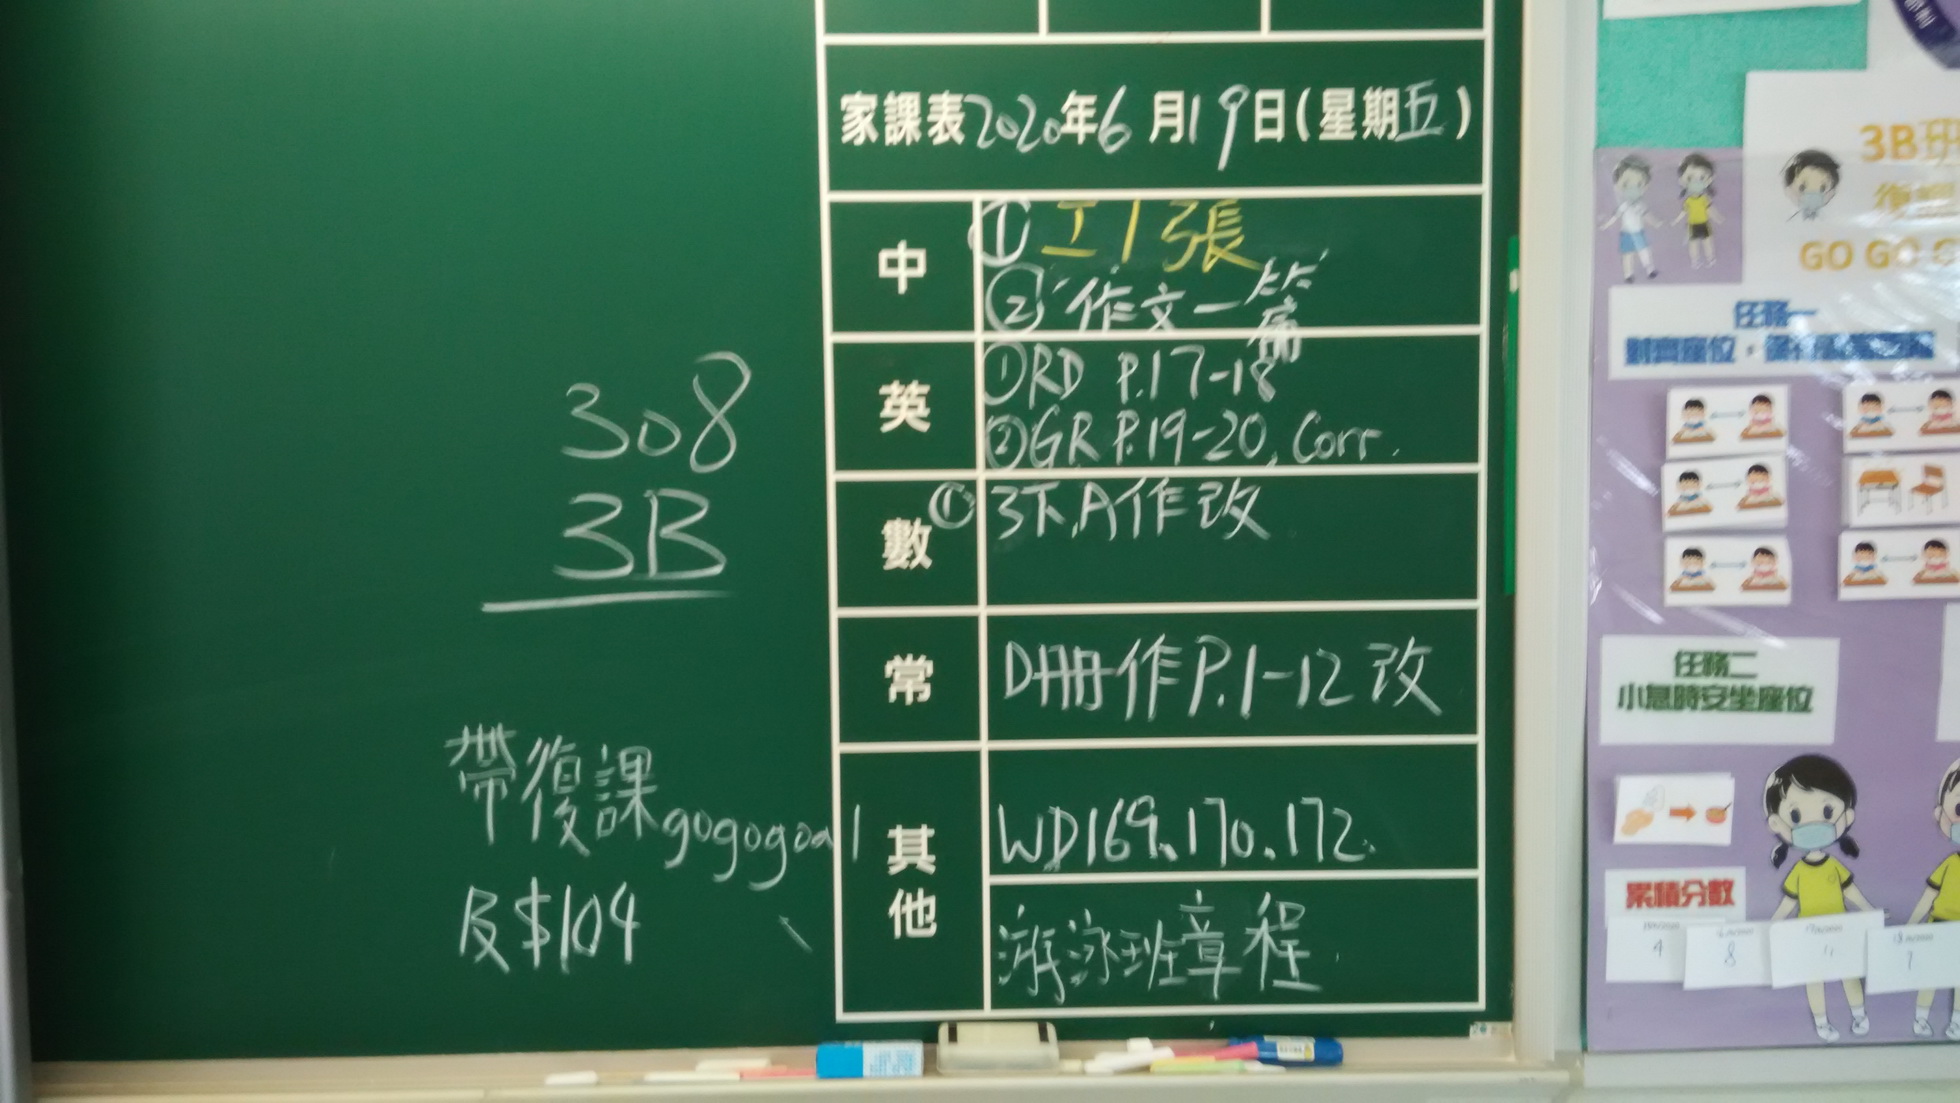 家課表2020年6月19日(星期五)
中
① 工1張
② 作文一篇
英
①RD P.17-18
②GR P.19-20, Corr.
數
① 3下A作改
常
D冊作P.1-12改
其他
WD169、170、172
游泳班章程
308
3B
帶復課gogogoal
及$104
3B班
GO GO G
任務一
對齊座位,
任務二
小息時安坐座位
累積分數
4
8